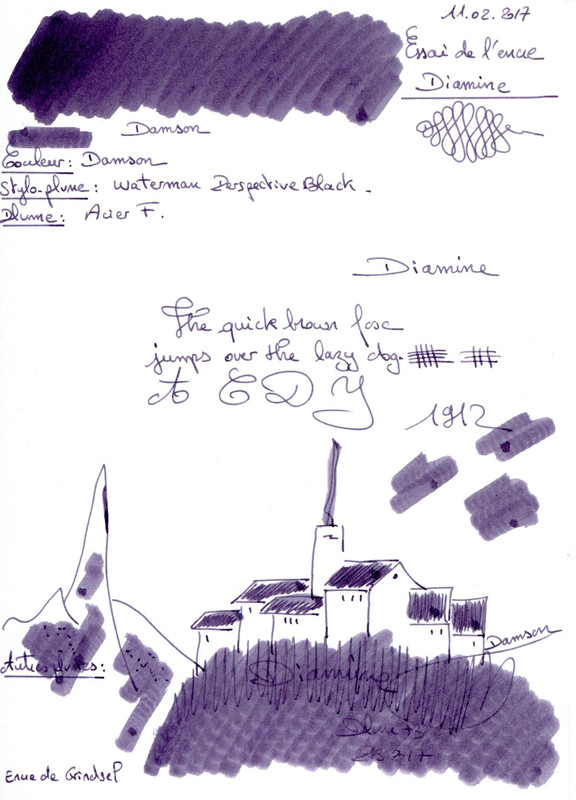 11.02.2017
Essai de l'encre
Diamine
Damson
Couleur: Damson
Stylo-plume: Waterman Perspective Black.
Plume: Acier F.
Diamine
The quick brown fox
jumps over the lazy dog.
A E D Y
1912
Damson
Autres plumes:
Diamine
Encre de Grindsel